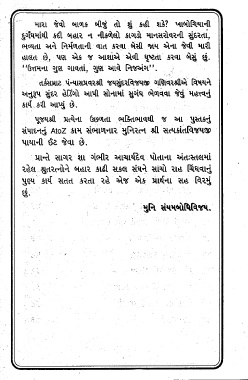 મારા જેવો બાળક બીજું તો શું કહી શકે? ખાબોચિયાની
દુર્ગંધમાંથી કદી બહાર ન નીકળેલો કાગડો માનસરોવરની સુંદરતા,
ભવ્યતા અને નિર્મળતાની વાત કરવા બેસી જાય એના જેવી મારી
હાલત છે, પણ એક જ આશાએ એવી ધૃષ્ટતા કરવા બેઠું છું.
"ઉત્તમના ગુણ ગાવતાં, ગુણ આવે નિજઅંગ".
તર્કસમ્રાટ પંન્યાસપ્રવરશ્રી જયસુંદરવિજયજી ગણિવરશ્રીએ વિષયને
અનુરૂપ સુંદર હેડિંગો આપી સોનામાં સુગંધ ભેળવવા જેવું મહત્ત્વનું
કાર્ય કરી આપ્યું છે.
પૂજ્યશ્રી પ્રત્યેના ઉછળતા ભક્તિભાવથી જ આ પુસ્તકનું
સંપાદનનું AtoZ કામ સંભાળનાર મુનિરત્ન શ્રી સત્યકાંતવિજયજી
પાયાની ઈંટ જેવા છે.
પ્રાન્તે સાગર શા ગંભીર આચાર્યદેવ પોતાના અંતઃસ્તલમાં
રહેલ શ્રુતરત્નોને બહાર કાઢી સકલ સંઘને સાચો રાહ ચિંધવાનું
પુણ્ય કાર્ય સતત કરતા રહે એજ એક પ્રાર્થના સહ વિરમું
છું.
મુનિ સંયમબોધિવિજય.